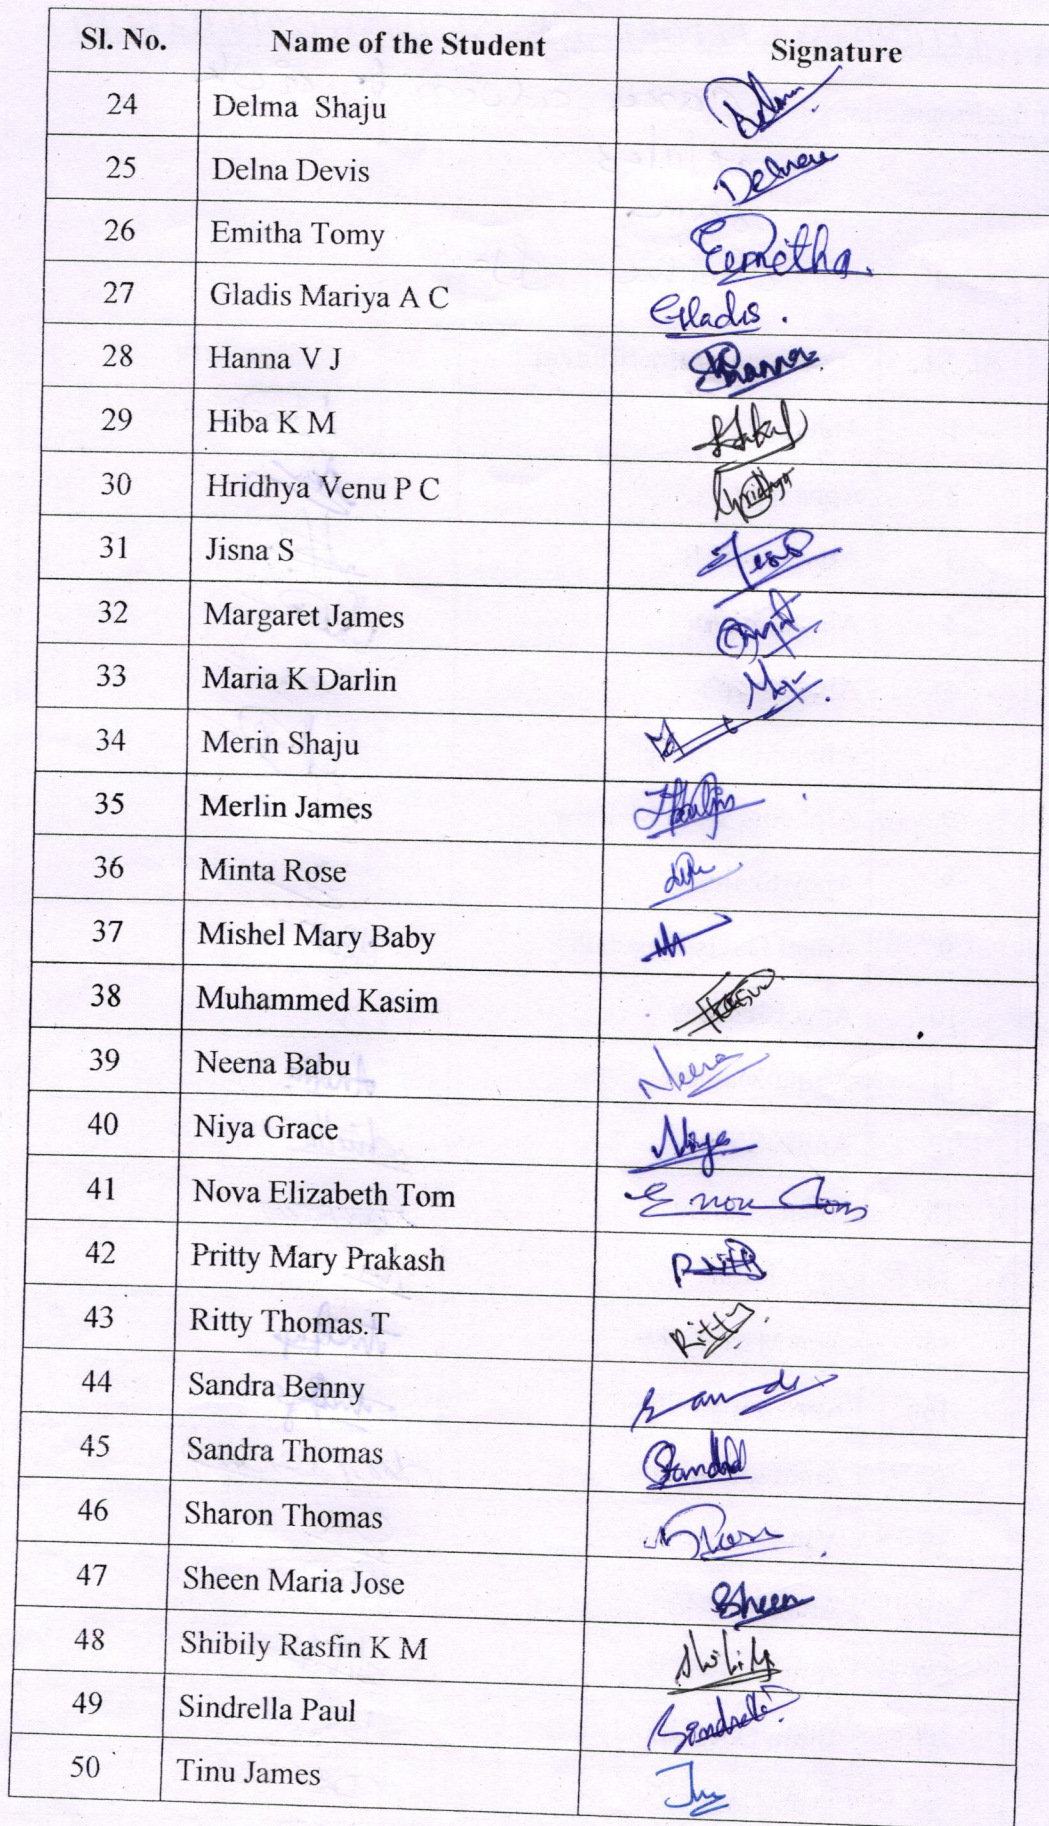 Sl. No. Name of the Student Signature
24 Delma Shaju Delma
25 Delna Devis Delna
26 Emitha Tomy Eemitha.
27 Gladis Mariya A C Gladis .
28 Hanna V J Hanna
29 Hiba K M
30 Hridhya Venu P C Hridhya
31 Jisna S
32 Margaret James
33 Maria K Darlin
34 Merin Shaju
35 Merlin James
36 Minta Rose
37 Mishel Mary Baby
38 Muhammed Kasim Kasim
39 Neena Babu Neena
40 Niya Grace Niya
41 Nova Elizabeth Tom
42 Pritty Mary Prakash Pritty
43 Ritty Thomas.T Ritty
44 Sandra Benny
45 Sandra Thomas Sandra
46 Sharon Thomas
47 Sheen Maria Jose Sheen
48 Shibily Rasfin K M Shibily
49 Sindrella Paul Sindrella
50 Tinu James